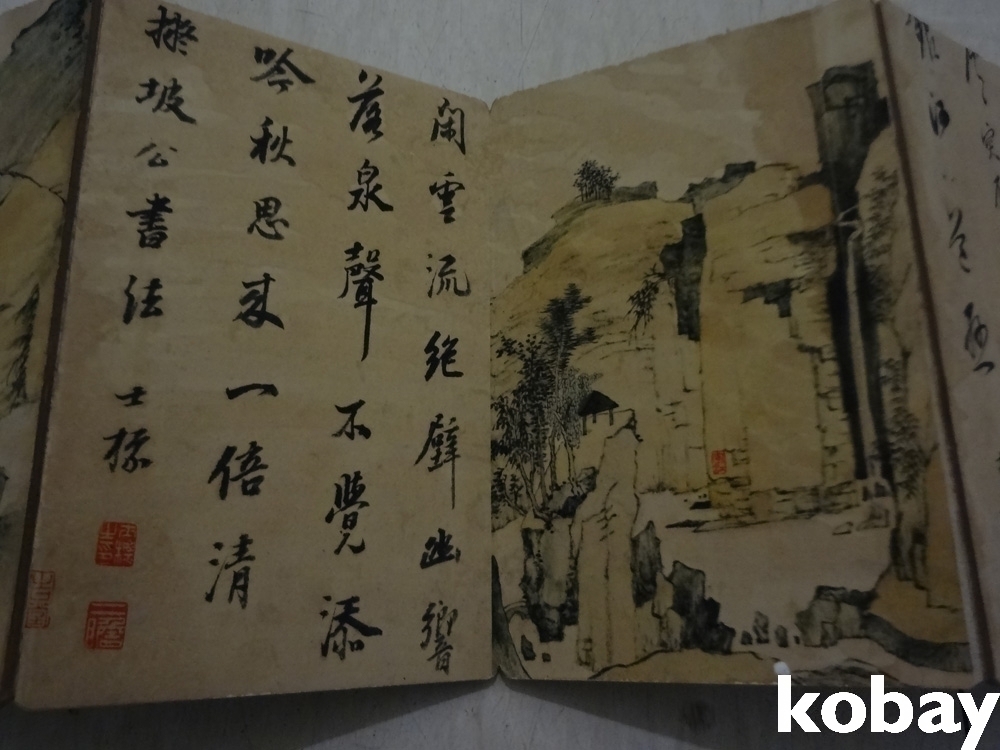 閒雲流絶壁幽響
落泉聲不覺添
吟秋思来一倍清
擬坡公書法 士標
kobay